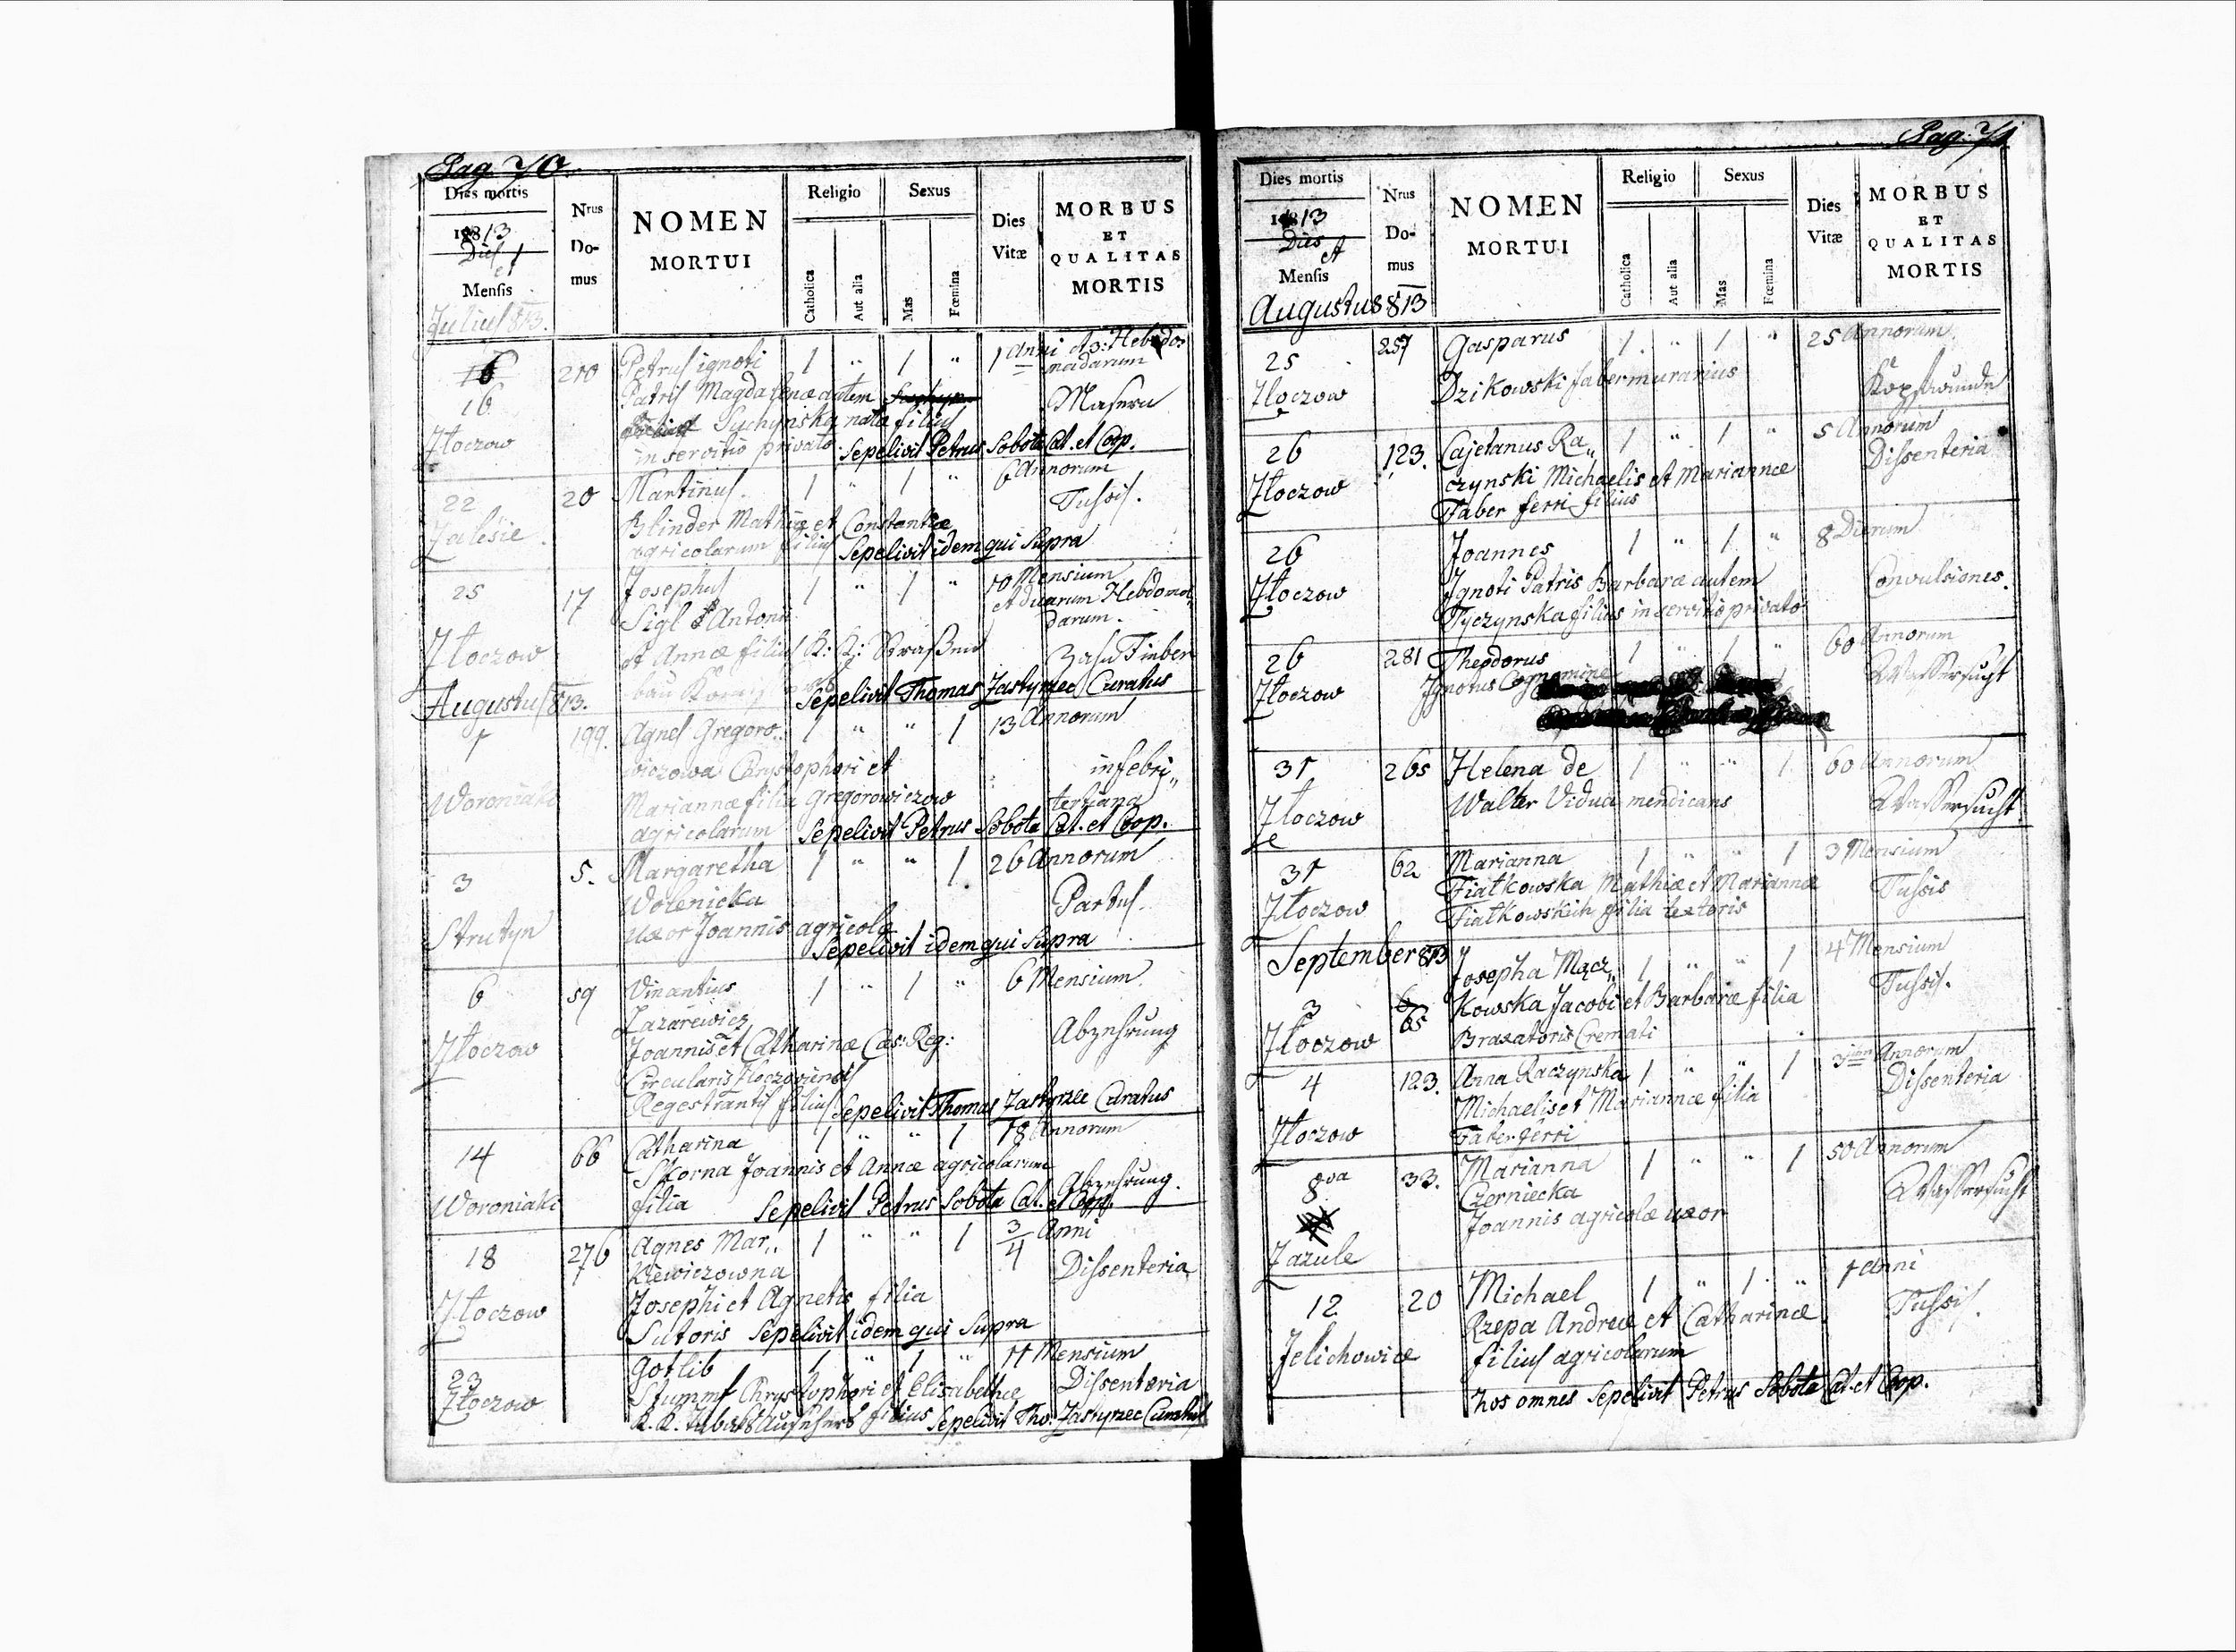 Pag. 70.
Dies mortis
1813
Dies et
Mensis
Nrus
Do-
mus
NOMEN
MORTUI
Religio
Catholica
Aut alia
Sexus
Mas
Fœmina
Dies
Vitæ
MORBUS
ET
QUALITAS
MORTIS
Julius 813.
16 210 Petrus ignoti 1 " 1 " 1 Anni et 3: Hebdo:
madarum
Patris Magdalenæ autem
Masern
Suchynska nata filius
Złoczow in servitio privato. Sepelivit Petrus Sobota Cat. et Coop.
22 20 Martinus. 1 " 1 " 6 Annorum
Tussis.
Zalesie Blinder Mathiæ et Constantiæ
agricolarum filius Sepelivit idem qui Supra
25 17 Josephus 1 " 1 " 10 Mensium
et duarum Hebdoma„
darum.
Sigl Antonii
Złoczow et Annæ filius K: K: Straßen
Zahn Fieber
bau Sepelivit Thomas Zastyrzec Curatus
Augustus 813.
1 199. Agnes Gregoro„ 1 " " 1 13 Annorum
wiczowa Chrystophori et
in febri„
tertiana
Woroniaki Mariannæ filia Gregorowiczow
agricolarum Sepelivit Petrus Sobota Cat. et Coop.
3 5. Margaretha 1 " " 1 26 Annorum
Wolenicka
Partus.
Strutyn uxor Joannis agricolæ
Sepelivit idem qui Supra
6 59 Vincentius 1 " 1 " 6 Mensium
Lazarewicz
Złoczow Joannis et Catharinæ Cæs: Reg:
Abzehrung
Circularis Złoczoviensis
Regestrantis filius Sepelivit Thomas Zastyrzec Curatus
14 66 Catharina 1 " " 1 18 Annorum
Skorna Joannis et Annæ agricolarum
Abzehrung.
Woroniaki filia Sepelivit Petrus Sobota Cat. et Coop.
18 276 Agnes Mar„ 1 " " 1 3/4 Anni
kiewiczowna
Dissenteria
Złoczow Josephi et Agnetis filia
Sutoris Sepelivit idem qui Supra
23 Gotlib 1 " 1 " 11 Mensium
Złoczow Stummf Chrystophori et Elisabethæ Dissenteria
K. K. Aufsehers filius Sepelivit Tho: Zastyrzec Curatus
Pag. 71
Dies mortis
1813
Dies et
Mensis
Nrus
Do-
mus
NOMEN
MORTUI
Religio
Catholica
Aut alia
Sexus
Mas
Fœmina
Dies
Vitæ
MORBUS
ET
QUALITAS
MORTIS
Augustus 813
25 257 Gasparus 1 " 1 " 25 Annorum
Złoczow Dzikowski faber murarius
Kopfwunde
26 123. Cajetanus Ra„ 1 " 1 " 5 Annorum
Dissenteria
Złoczow czynski Michaelis et Mariannæ
Faber ferri filius
26 Joannes 1 " 1 " 8 Dierum
Złoczow Ignoti Patris Barbaræ autem
Convulsiones.
Tyczynska filius in servitio privato
26 281 Theodorus 1 " 1 " 60 Annorum
Złoczow Ignotus Cognomine
Wassersucht
31 265 Helena de 1 " " 1 60 Annorum
Złoczow Walter Vidua mendicans
Wassersucht
31 62 Marianna 1 " " 1 3 Mensium
Złoczow Fiałkowska Mathiæ et Mariannæ
Tussis
Fiałkowskich filia textoris
September 813
3 65 Josepha Mącz„ 1 " " 1 4 Mensium
Tussis.
Złoczow kowska Jacobi et Barbaræ filia
Braxatoris Cremati
4 123. Anna Raczynska 1 " " 1 3 Annorum
Dissenteria
Michaelis et Mariannæ filia
Złoczow Faber ferri
8va 33. Marianna 1 " " 1 50 Annorum
Czerniecka
Wassersucht
Joannis agricolæ uxor
Zazule
12 20 Michael 1 " 1 " 1 Anni
Rzepa Andreæ et Catharinæ
Tussis.
Jelichowice filius agricolarum
hos omnes Sepelivit Petrus Sobota Cat. et Coop.